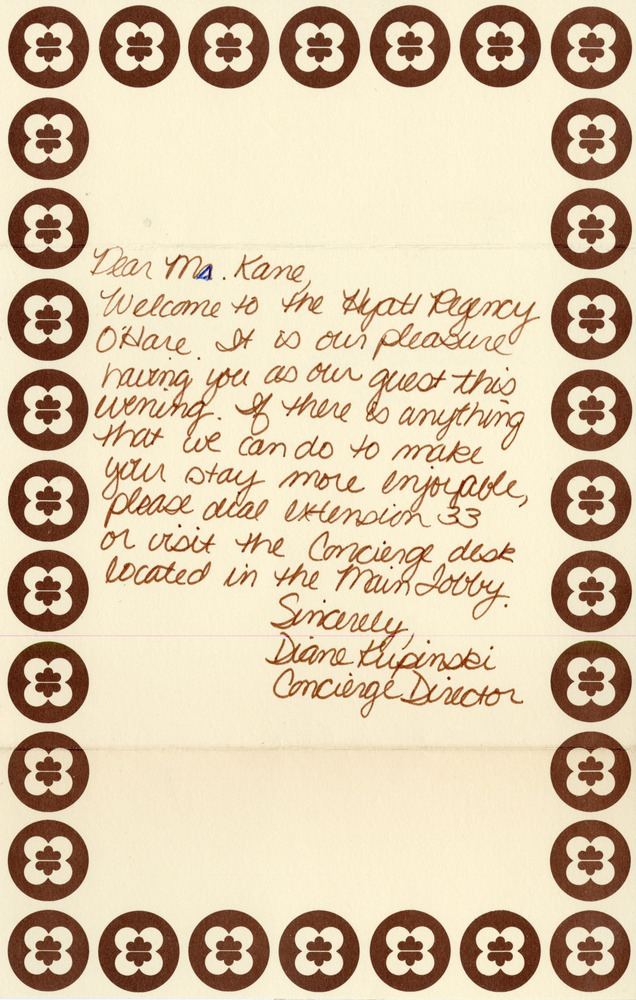 Dear Ms. Kane,
Welcome to the Hyatt Regency
O'Hare. It is our pleasure
having you as our guest this
evening. If there is anything
that we can do to make
your stay more enjoyable,
please dial extension 33
or visit the Concierge desk
located in the Main Lobby.
Sincerely,
Diane Kupinski
Concierge Director